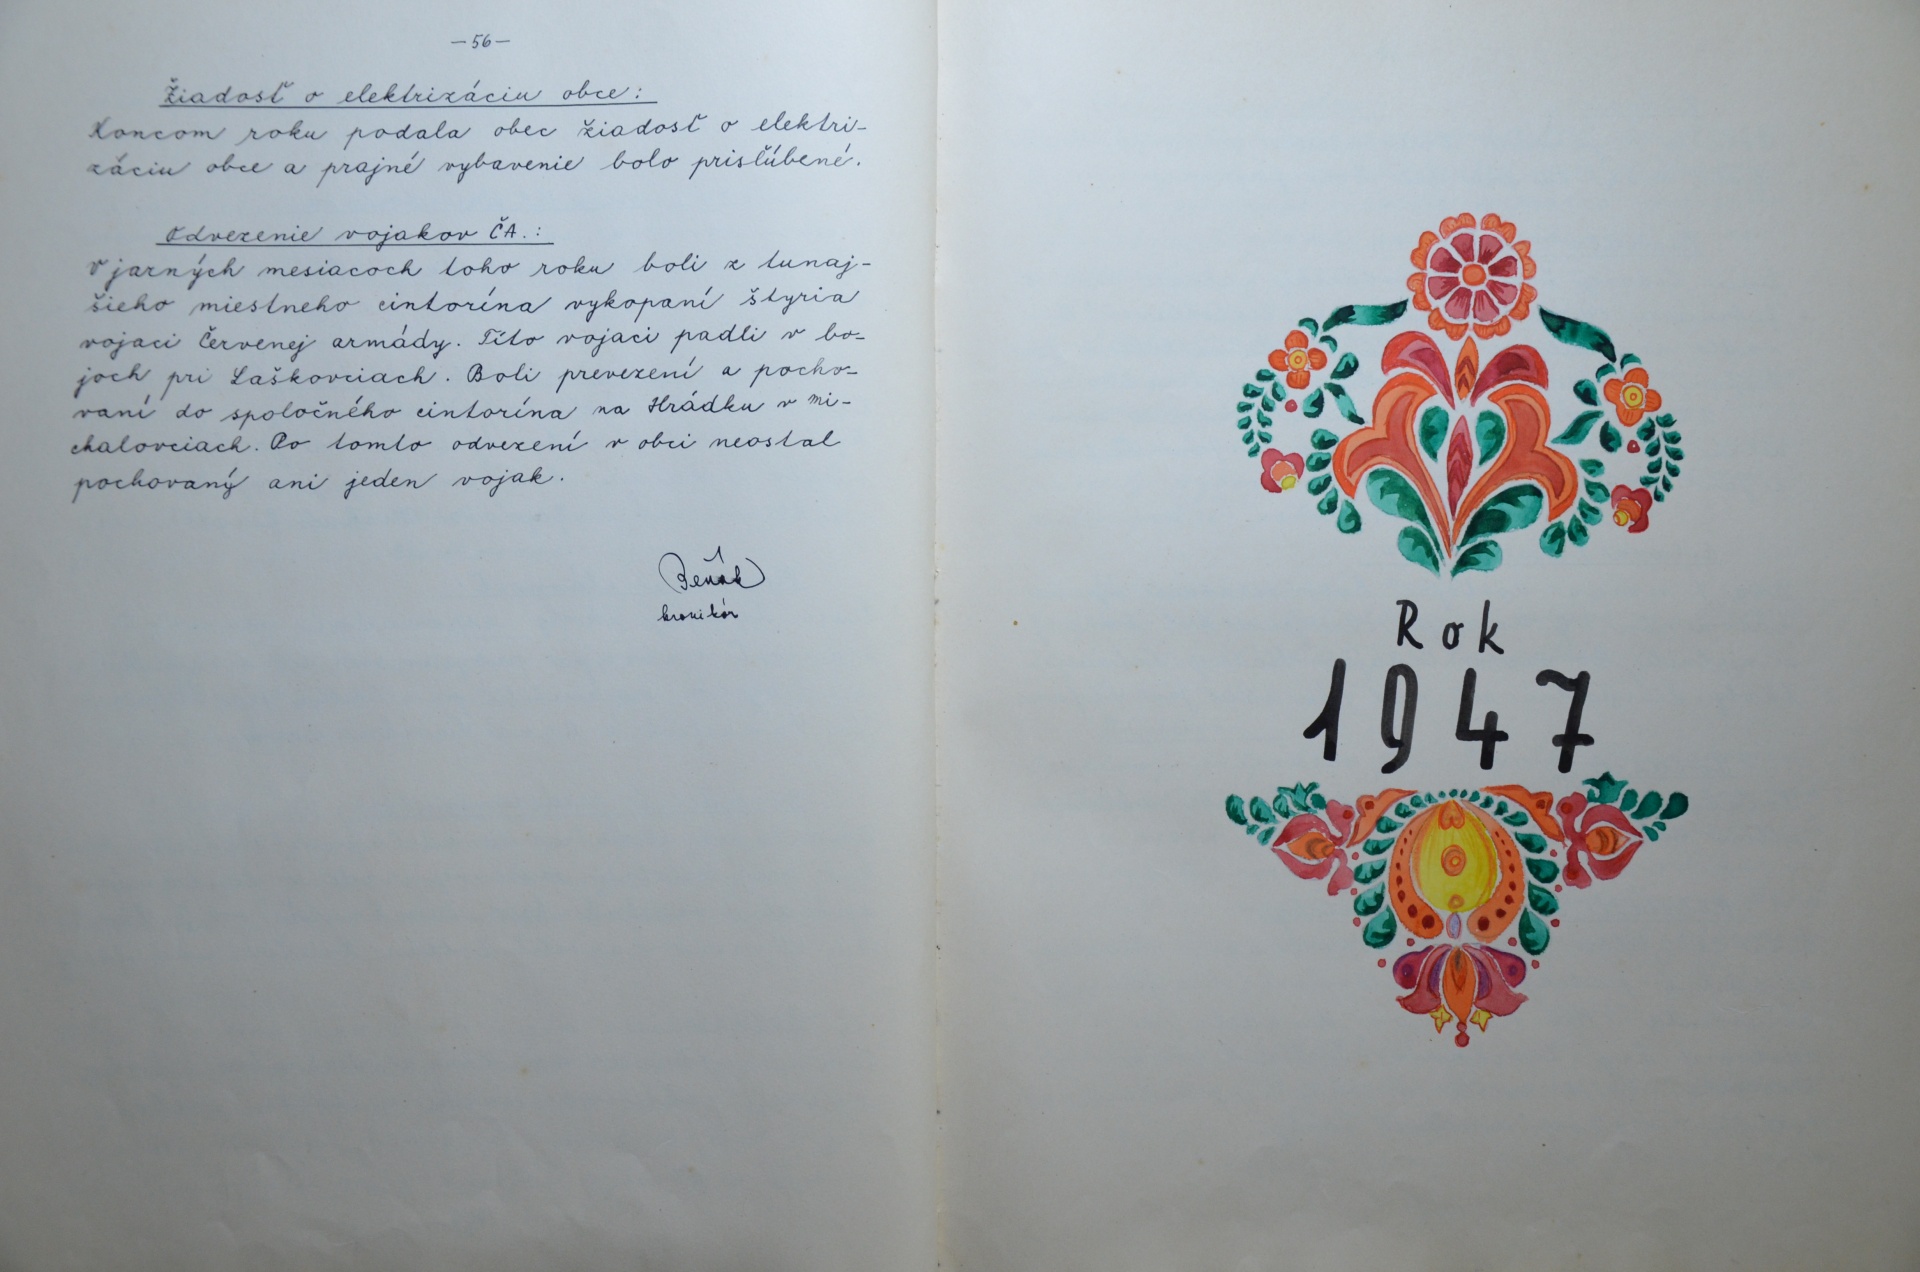 — 56 —
Žiadosť o elektrizáciu obce:
Koncom roku podala obec žiadosť o elektri-
záciu obce a prajné vybavenie bolo prisľúbené.
Odvezenie vojakov ČA.:
V jarných mesiacoch toho roku boli z tunaj-
šieho miestneho cintorína vykopaní štyria
vojaci Červenej armády. Títo vojaci padli v bo-
joch pri Laškovciach. Boli prevezení a pocho-
vaní do spoločného cintorína na Hrádku v Mi-
chalovciach. Po tomto odvezení v obci neostal
pochovaný ani jeden vojak.
kronikár
Rok
1947